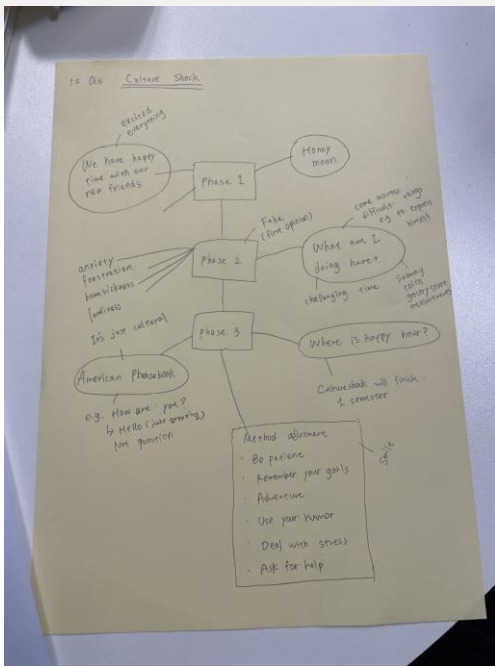 Culture Shock
excited
everything
We have happy
time with our
new friends
Phase 1
Honey
moon
Fake
(first opinion)
Phase 2
anxiety
frustration
homesickness
loneliness
What am I
doing here?
come across
difficult things
e.g. to express
himself
challenging time
subway
coins
grocery store
measurements
It's just cultural
phase 3
American Phrasebook
e.g. How are you?
↳ Hello (just greeting)
Not question
Where is happy hour?
Cultureshock will finish
1 semester
Method adjustment
· Be patient
· Remember your goals
· Adventure
· Use your humor
· Deal with stress
· Ask for help
Smile